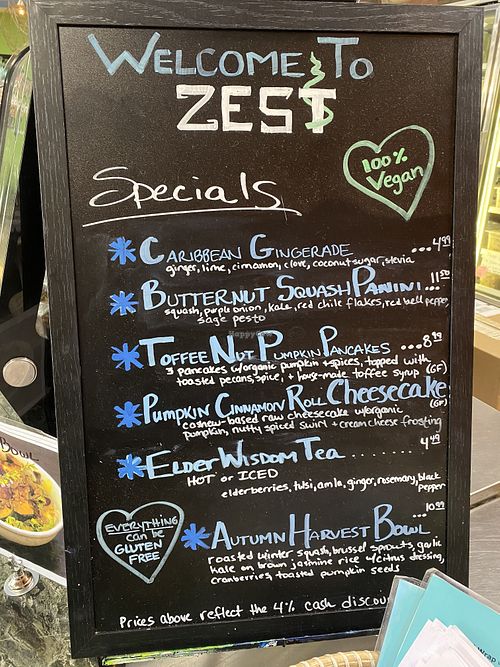 WELCOME TO
ZEST
100%
Vegan
Specials
* CARIBBEAN GINGERADE ...4.99
ginger, lime, cinnamon, clove, coconut sugar, stevia
* BUTTERNUT SQUASH PANINI...11.50
squash, purple onion, kale, red chile flakes, red bell pepper,
sage pesto
* TOFFEE NUT PUMPKIN PANCAKES ...8.99
3 pancakes w/organic pumpkin + spices, topped with
toasted pecans, spice, + house-made toffee syrup (GF)
* PUMPKIN CINNAMON ROLL CHEESECAKE
cashew-based raw cheesecake w/organic (GF)
pumpkin, nutty spiced swirl + cream cheese frosting
* ELDER WISDOM TEA ........ 4.49
HOT or ICED
elderberries, tulsi, amla, ginger, rosemary, black
pepper
EVERYTHING
can be
GLUTEN
FREE
* AUTUMN HARVEST BOWL ...10.99
roasted winter squash, brussel sprouts, garlic
kale on brown jasmine rice w/citrus dressing,
cranberries, toasted pumpkin seeds
Prices above reflect the 4% cash discou
BOWL
wrap